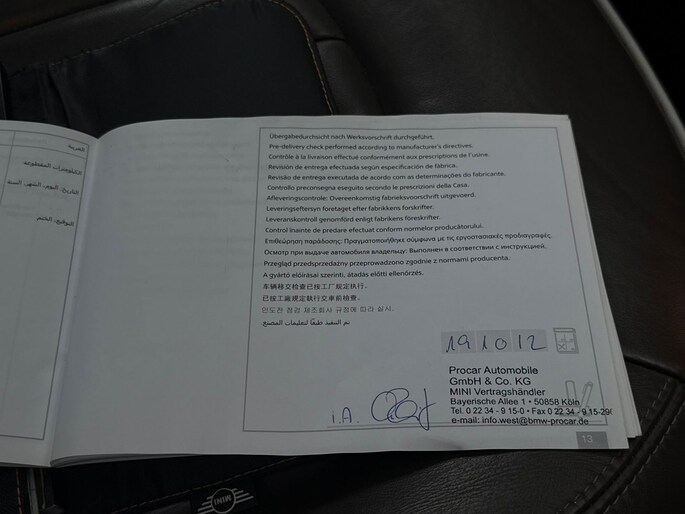 العربية
الكيلومترات المقطوعة
التاريخ، اليوم، الشهر، السنة
التوقيع، الختم
Übergabedurchsicht nach Werksvorschrift durchgeführt.
Pre-delivery check performed according to manufacturer's directives.
Contrôle à la livraison effectué conformément aux prescriptions de l'usine.
Revisión de entrega efectuada según especificación de fábrica.
Revisão de entrega executada de acordo com as determinações do fabricante.
Controllo preconsegna eseguito secondo le prescrizioni della Casa.
Afleveringscontrole: Overeenkomstig fabrieksvoorschrift uitgevoerd.
Leveringseftersyn foretaget efter fabrikkens forskrifter.
Leveranskontroll genomförd enligt fabrikens föreskrifter.
Control înainte de predare efectuat conform normelor producătorului.
Επιθεώρηση παράδοσης: Πραγματοποιήθηκε σύμφωνα με τις εργοστασιακές προδιαγραφές.
Осмотр при выдаче автомобиля владельцу: Выполнен в соответствии с инструкцией.
Przegląd przedsprzedażny przeprowadzono zgodnie z normami producenta.
A gyártó előírásai szerinti, átadás előtti ellenőrzés.
车辆移交检查已按工厂规定执行。
已按工廠規定執行交車前檢查。
인도전 점검 제조회사 규정에 따라 실시.
تم التنفيذ طبقًا لتعليمات المصنع
19 10 12
Procar Automobile
GmbH & Co. KG
MINI Vertragshändler
Bayerische Allee 1 • 50858 Köln
Tel. 0 22 34 - 9 15-0 • Fax 0 22 34 - 9 15-290
e-mail: info.west@bmw-procar.de
i.A.
13
MINI